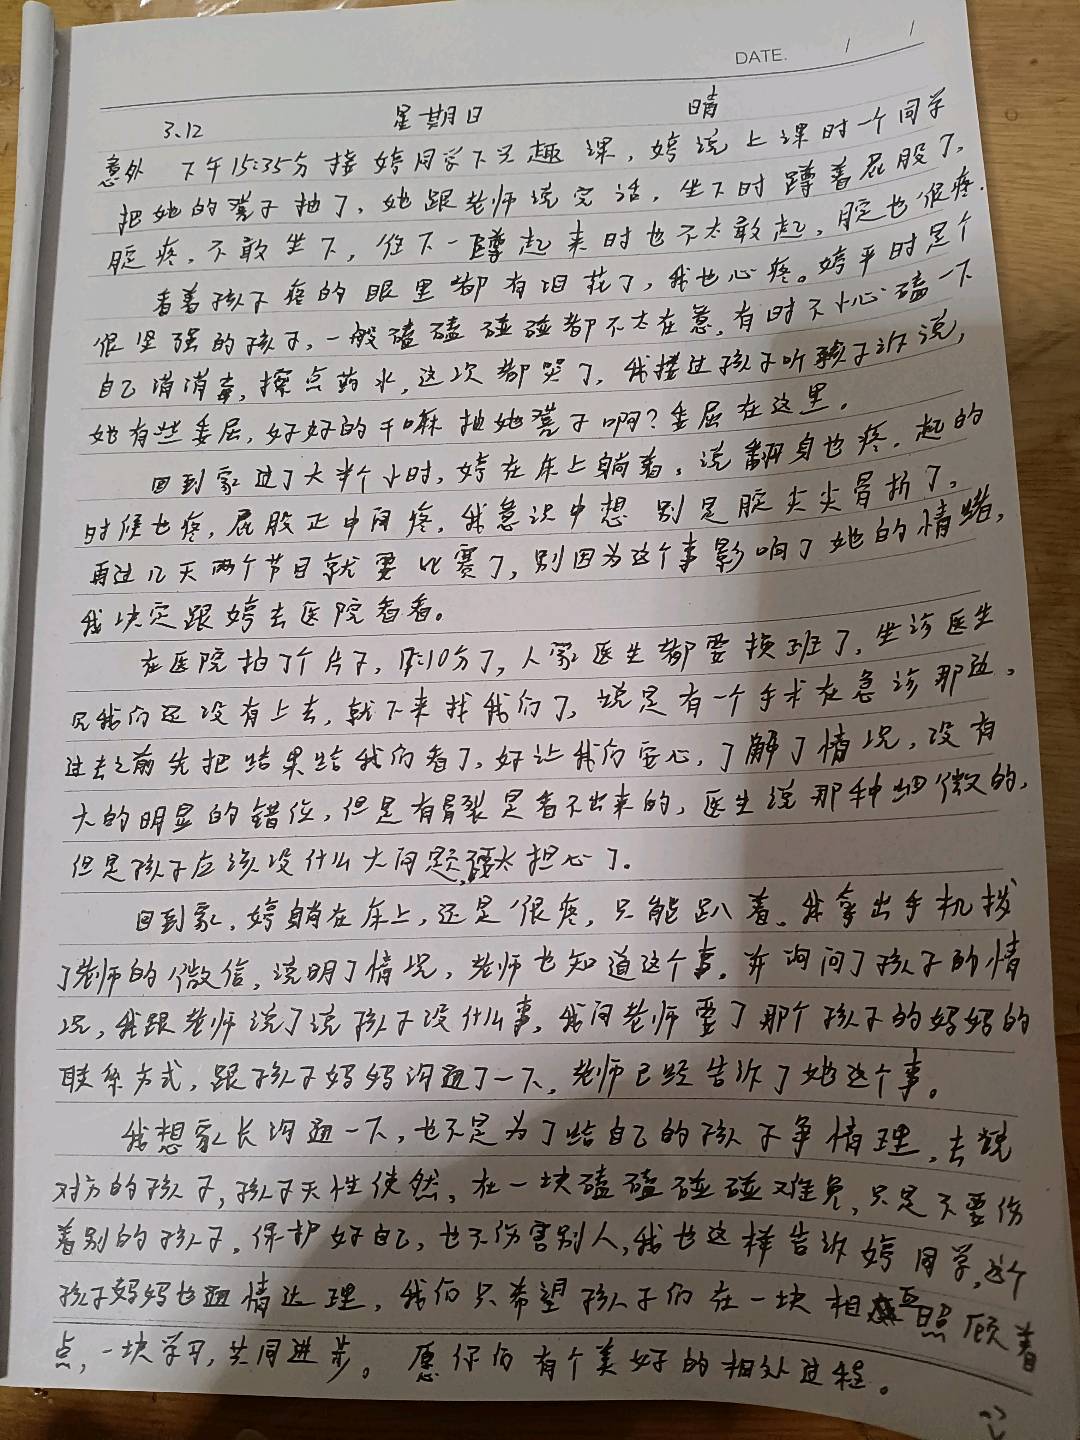 DATE. / /
3.12 星期日 晴
意外 下午15:35分接婷同学下兴趣课，婷说上课时一个同学
把她的凳子抽了，她跟老师说完话，坐下时蹲着屁股了，
腚疼，不敢坐下，往下一蹲起来时也不太敢起，腚也很疼.
看着孩子疼的眼里都有泪花了，我也心疼。婷平时是个
很坚强的孩子，一般磕磕碰碰都不太在意，有时不小心磕一下
自己消消毒，擦点药水，这次都哭了，我接过孩子听孩子诉说，
她有些委屈，好好的干嘛抽她凳子啊？委屈在这里。
回到家过了大半个小时，婷在床上躺着，说翻身也疼，起的
时候也疼，屁股正中间疼，我意识中想 别是腚尖尖骨折了，
再过几天两个节目就要比赛了，别因为这个事影响了她的情绪，
我决定跟婷去医院看看。
在医院拍了个片子，10分了，人家医生都要换班了，坐诊医生
见我们还没有上去，就下来找我们了，说是有一个手术在急诊那边，
过去之前先把结果给我们看了，好让我们安心，了解了情况，没有
大的明显的错位，但是有骨裂是看不出来的，医生说那种细微的，
但是孩子应该没什么大问题，太担心了。
回到家，婷躺在床上，还是很疼，只能趴着。我拿出手机拨
了老师的微信，说明了情况，老师也知道这个事，并询问了孩子的情
况，我跟老师说了说孩子没什么事，我问老师要了那个孩子的妈妈的
联系方式，跟孩子妈妈沟通了一下，老师已经告诉了她这个事。
我想家长沟通一下，也不是为了给自己的孩子争情理，去说
对方的孩子，孩子天性使然，在一块磕磕碰碰难免，只是不要伤
着别的孩子，保护好自己，也不伤害别人，我也这样告诉婷同学，这个
孩子妈妈也通情达理，我们只希望孩子们在一块相互照顾着
点，一块学习，共同进步。愿你们有个美好的相处过程。